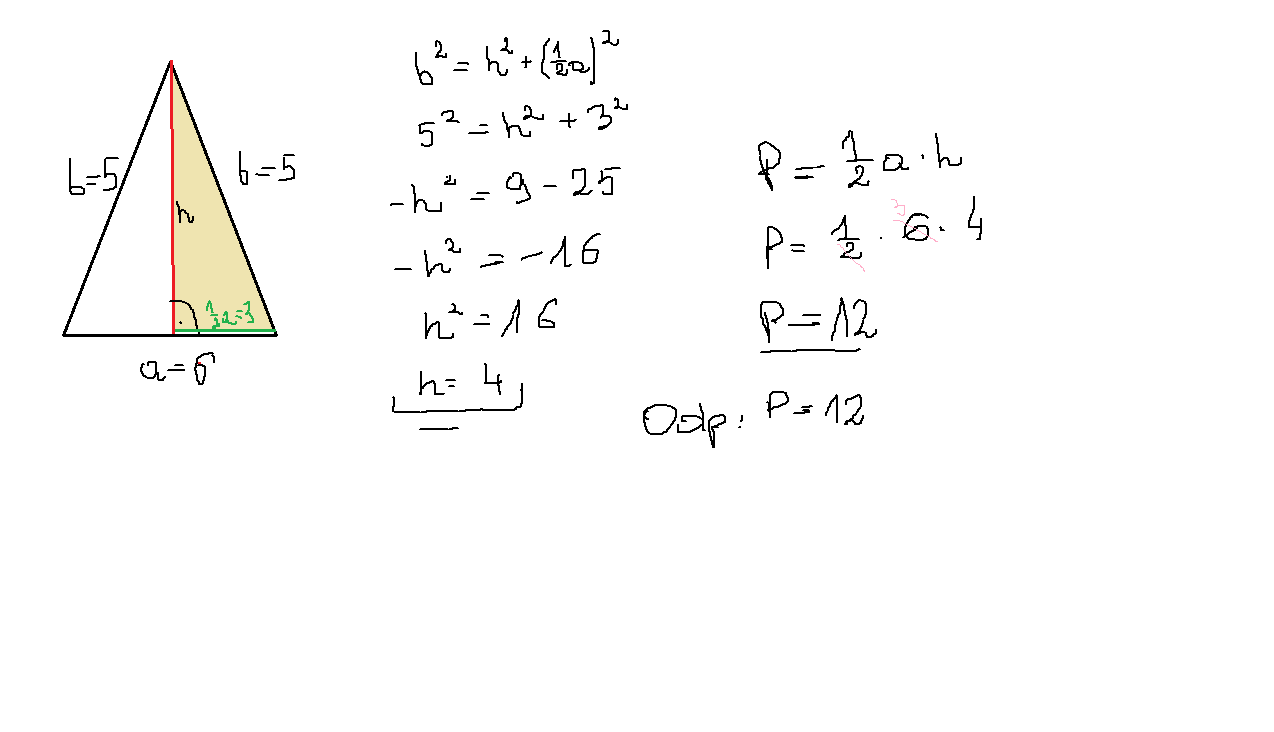 b=5
b=5
h
½a=3
a=6
b² = h² + (½a)²
5² = h² + 3²
-h² = 9 - 25
-h² = -16
h² = 16
h = 4
P = ½a · h
P = ½ · 6 · 4
3
P = 12
Odp: P = 12